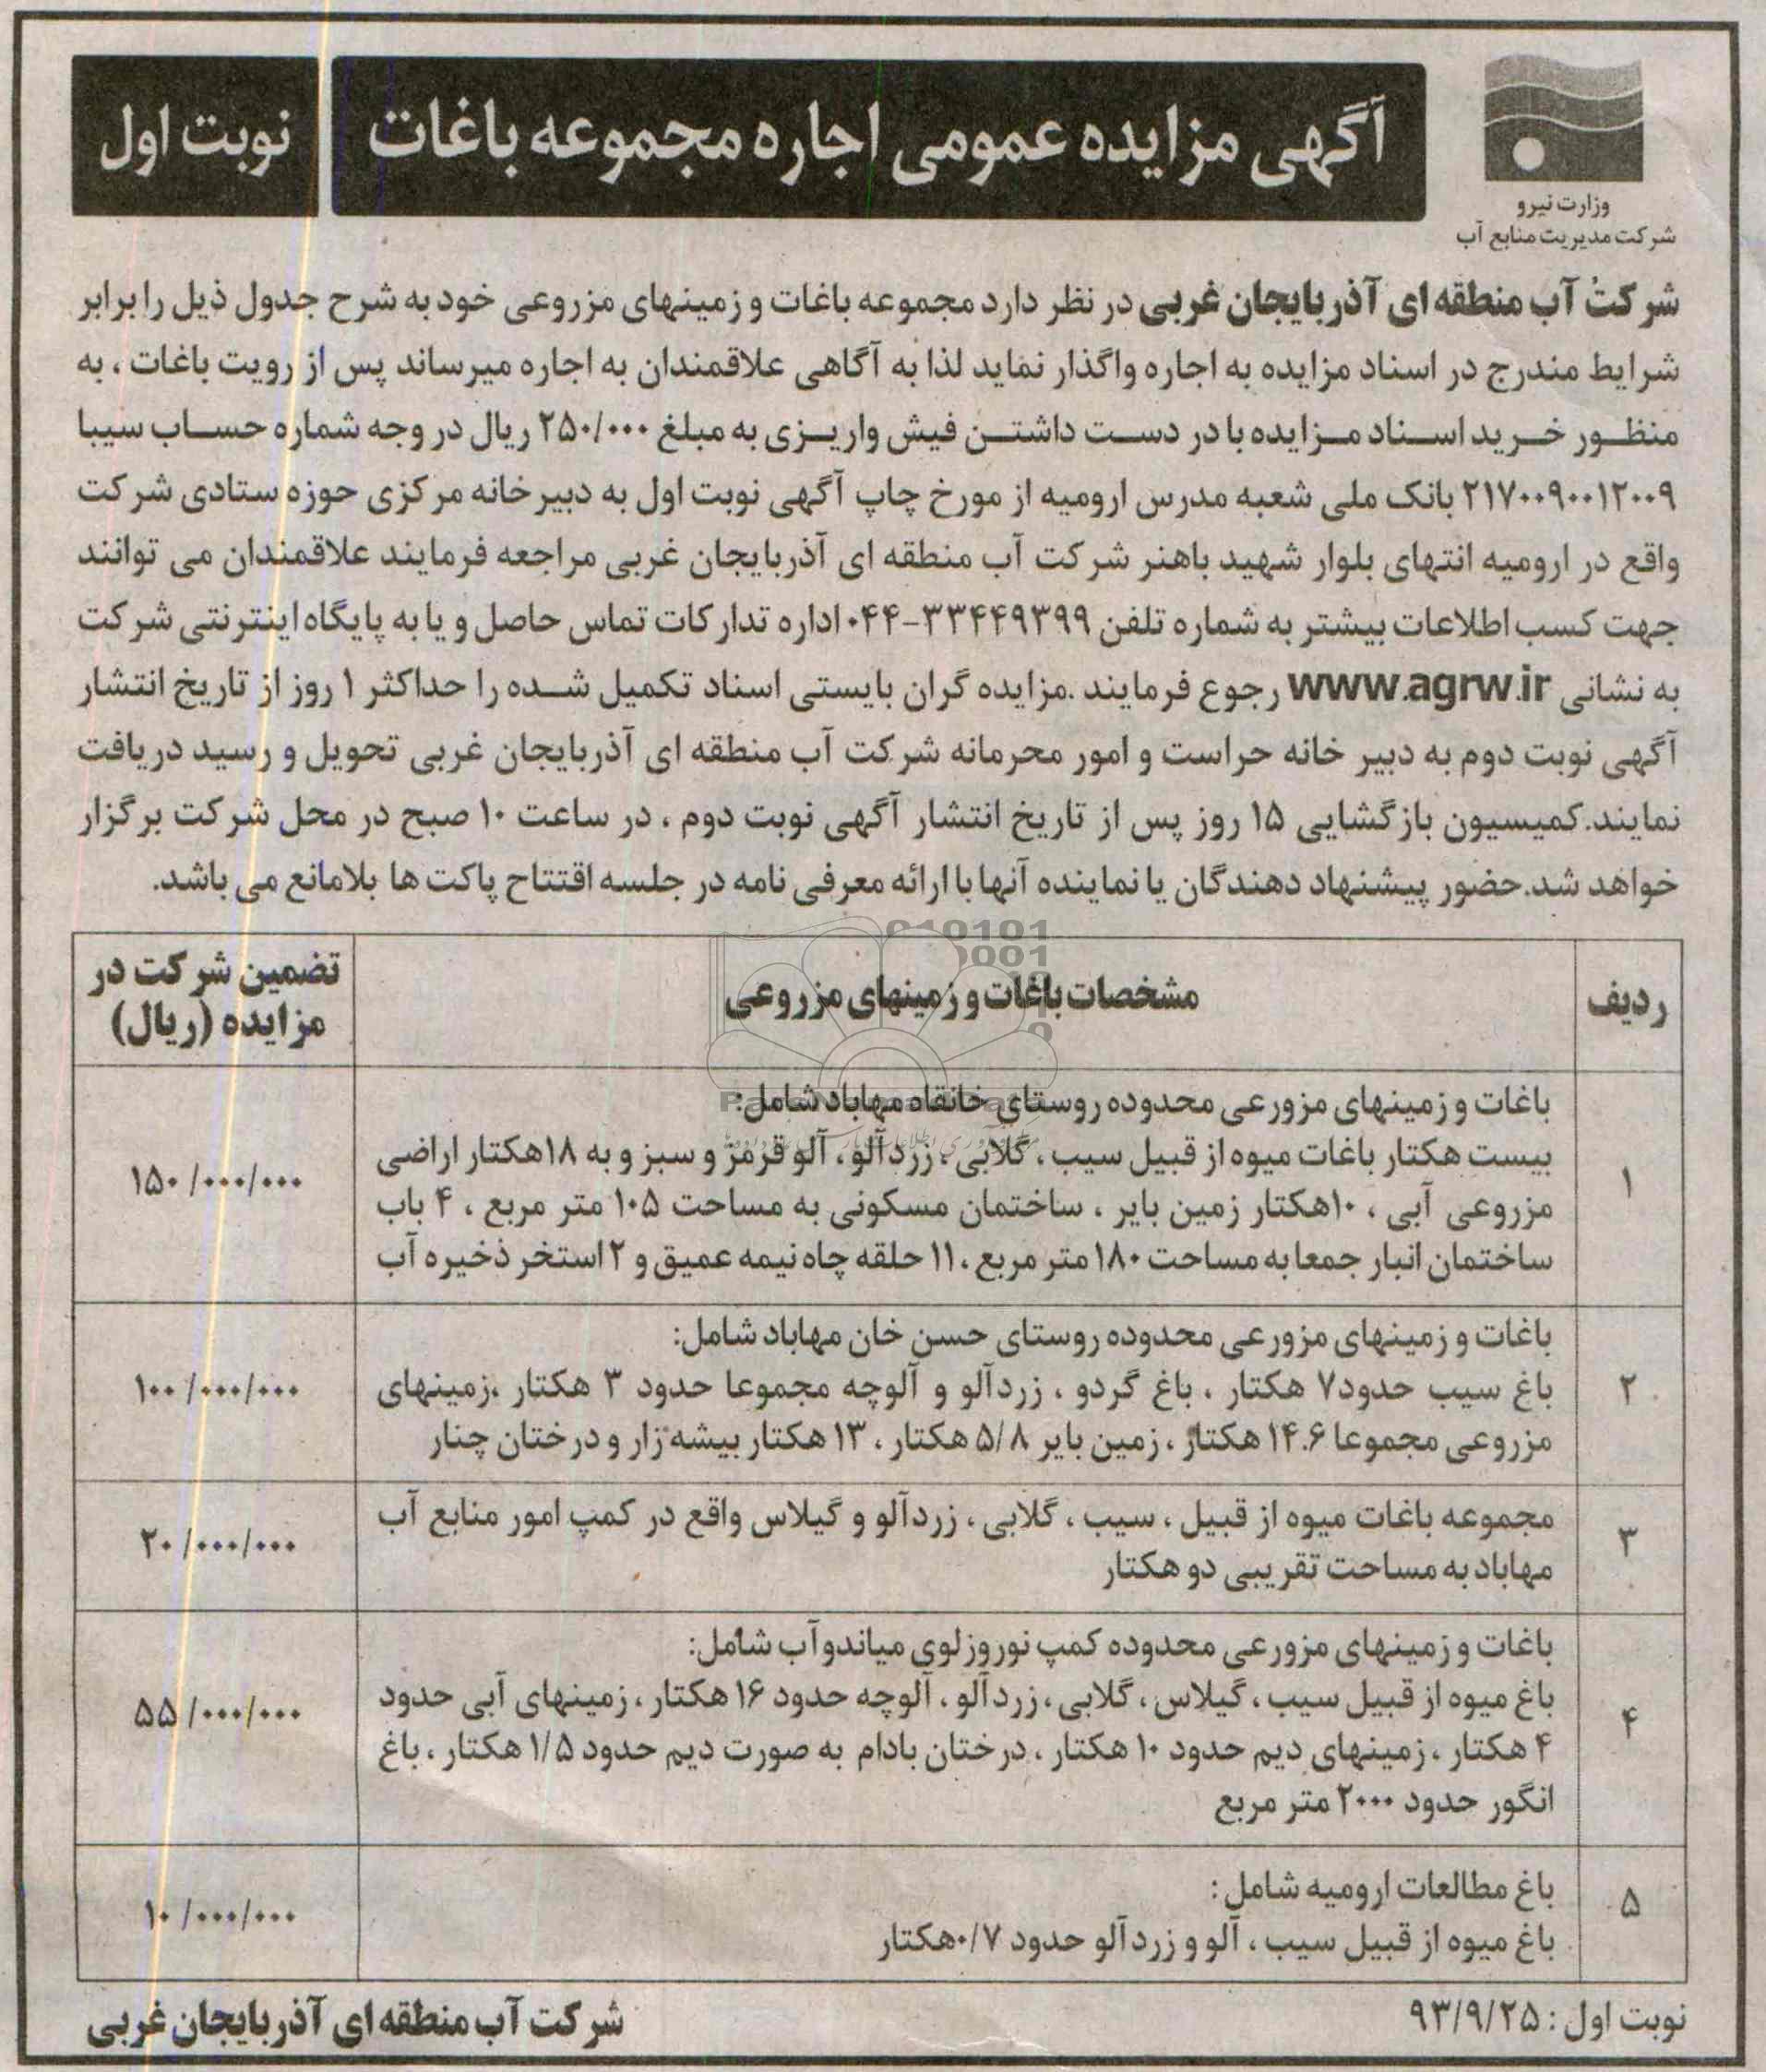 وزارت نیرو
شرکت مدیریت منابع آب
آگهی مزایده عمومی اجاره مجموعه باغات
نوبت اول
شرکت آب منطقه ای آذربایجان غربی در نظر دارد مجموعه باغات و زمینهای مزروعی خود به شرح جدول ذیل را برابر
شرایط مندرج در اسناد مزایده به اجاره واگذار نماید لذا به آگاهی علاقمندان به اجاره میرساند پس از رویت باغات ، به
منظور خرید اسناد مزایده با در دست داشتن فیش واریزی به مبلغ ۲۵۰/۰۰۰ ریال در وجه شماره حساب سیبا
۲۱۷۰۰۹۰۰۱۲۰۰۹ بانک ملی شعبه مدرس ارومیه از مورخ چاپ آگهی نوبت اول به دبیرخانه مرکزی حوزه ستادی شرکت
واقع در ارومیه انتهای بلوار شهید باهنر شرکت آب منطقه ای آذربایجان غربی مراجعه فرمایند علاقمندان می توانند
جهت کسب اطلاعات بیشتر به شماره تلفن ۳۳۴۴۹۳۹۹-۰۴۴ اداره تدارکات تماس حاصل و یا به پایگاه اینترنتی شرکت
به نشانی www.agrw.ir رجوع فرمایند .مزایده گران بایستی اسناد تکمیل شده را حداکثر ۱ روز از تاریخ انتشار
آگهی نوبت دوم به دبیر خانه حراست و امور محرمانه شرکت آب منطقه ای آذربایجان غربی تحویل و رسید دریافت
نمایند.کمیسیون بازگشایی ۱۵ روز پس از تاریخ انتشار آگهی نوبت دوم ، در ساعت ۱۰ صبح در محل شرکت برگزار
خواهد شد.حضور پیشنهاد دهندگان یا نماینده آنها با ارائه معرفی نامه در جلسه اقتتاح پاکت ها بلامانع می باشد.
ردیف
مشخصات باغات و زمینهای مزروعی
تضمین شرکت در
مزایده (ریال)
۱
باغات و زمینهای مزورعی محدوده روستای خانقاه مهاباد شامل:
بیست هکتار باغات میوه از قبیل سیب ، گلابی ، زردآلو ، آلو قرمز و سبز و به ۱۸هکتار اراضی
مزروعی آبی ، ۱۰هکتار زمین بایر ، ساختمان مسکونی به مساحت ۱۰۵ متر مربع ، ۴ باب
ساختمان انبار جمعا به مساحت ۱۸۰ متر مربع ، ۱۱ حلقه چاه نیمه عمیق و ۲ استخر ذخیره آب
۱۵۰/۰۰۰/۰۰۰
۲
باغات و زمینهای مزورعی محدوده روستای حسن خان مهاباد شامل:
باغ سیب حدود۷ هکتار ، باغ گردو ، زردآلو و آلوچه مجموعا حدود ۳ هکتار ،زمینهای
مزروعی مجموعا ۱۴.۶ هکتار ، زمین بایر ۵/۸ هکتار ، ۱۳ هکتار بیشه زار و درختان چنار
۱۰۰/۰۰۰/۰۰۰
۳
مجموعه باغات میوه از قبیل ، سیب ، گلابی ، زردآلو و گیلاس واقع در کمپ امور منابع آب
مهاباد به مساحت تقریبی دو هکتار
۲۰/۰۰۰/۰۰۰
۴
باغات و زمینهای مزورعی محدوده کمپ نوروزلوی میاندوآب شامل:
باغ میوه از قبیل سیب ، گیلاس ، گلابی ، زردآلو ، آلوچه حدود ۱۶ هکتار ، زمینهای آبی حدود
۴ هکتار ، زمینهای دیم حدود ۱۰ هکتار ، درختان بادام به صورت دیم حدود ۱/۵ هکتار ، باغ
انگور حدود ۲۰۰۰ متر مربع
۵۵/۰۰۰/۰۰۰
۵
باغ مطالعات ارومیه شامل :
باغ میوه از قبیل سیب ، آلو و زردآلو حدود ۰/۷هکتار
۱۰/۰۰۰/۰۰۰
نوبت اول : ۹۳/۹/۲۵
شرکت آب منطقه ای آذربایجان غربی